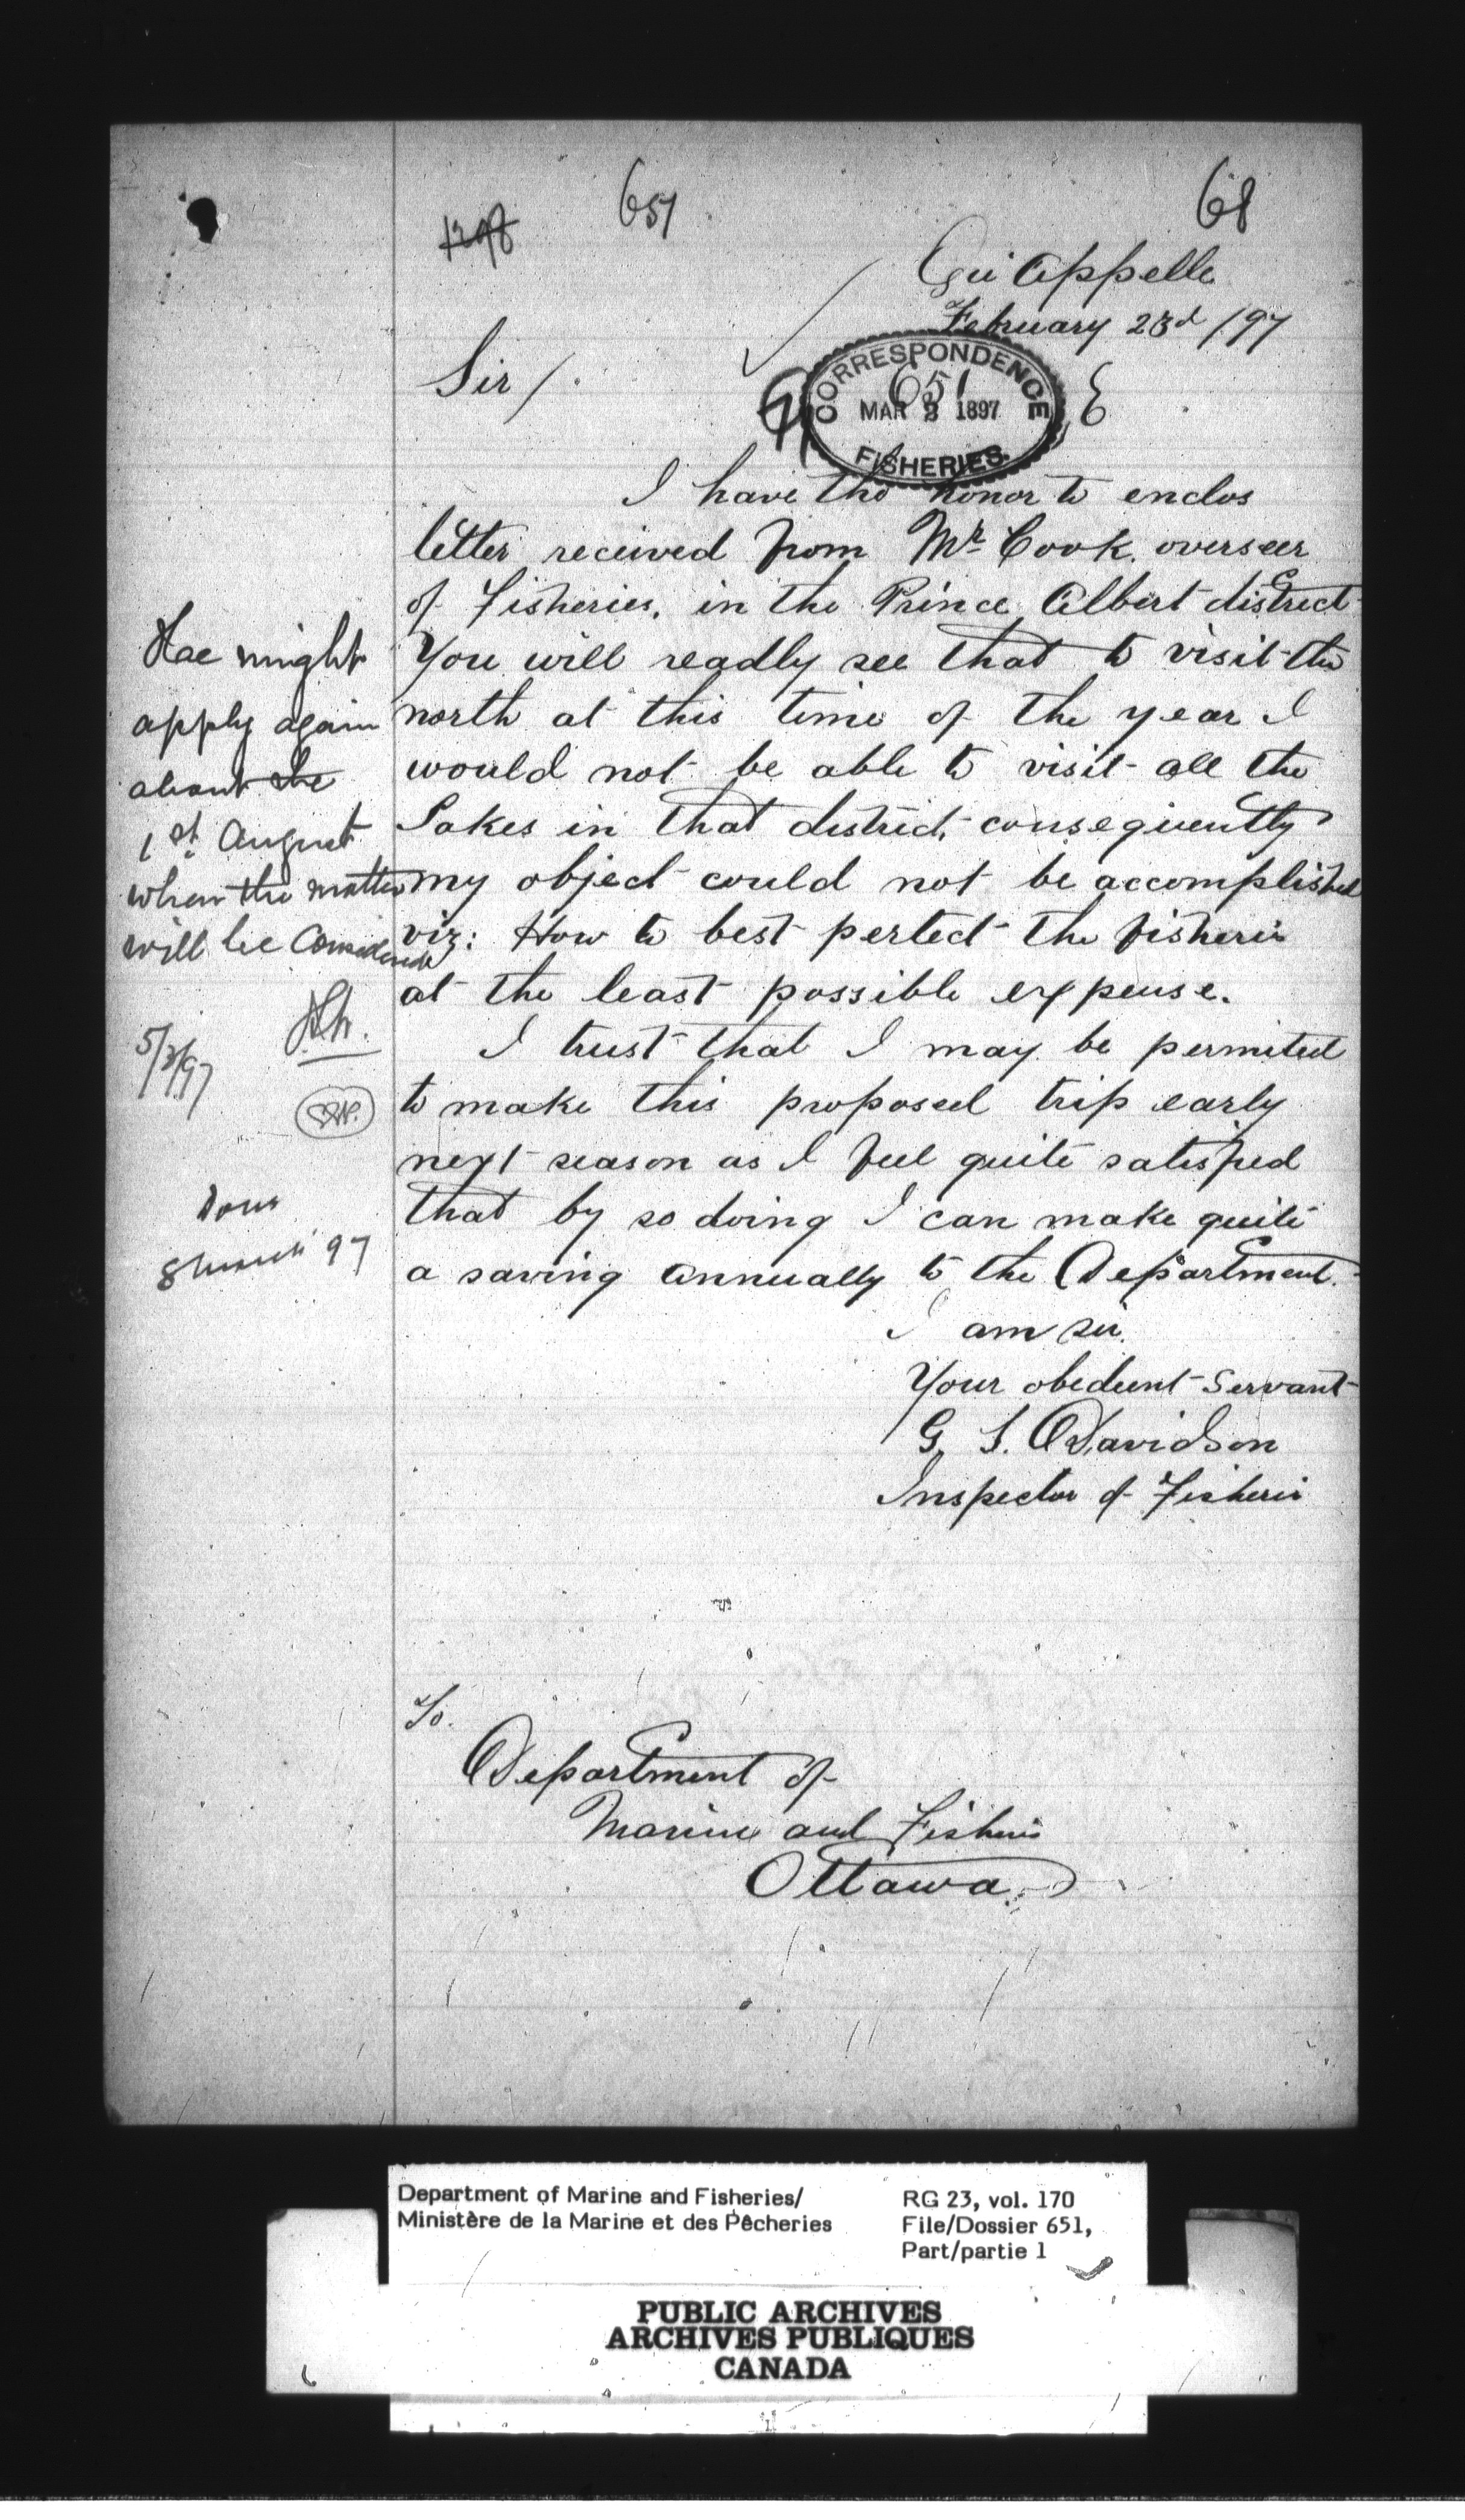 651
68
1298
Qui Appelle
February 23d /97
Sir/
CORRESPONDENCE
651
MAR 3 1897
FISHERIES.
I have the honor to enclos
letter received from Mr Cook. overseer
of Fisheries, in the Prince Albert district
You will readly see that to visit the
north at this time of the year I
would not be able to visit all the
Lakes in that district, consequently
my object could not be accomplished
viz: How to best pertect the fisheris
at the least possible expense.
I trust that I may be permited
to make this proposed trip early
next season as I feel quite satisfied
that by so doing I can make quite
a saving annually to the Department.
I am sir.
Your obedient Servant
G. S. Davidson
Inspector of Fisheris
He might
apply again
about the
1st August
when the matter
will be Considered
5/3/97
Done
8 March 97
To.
Department of
Marine and Fisheris
Ottawa.
Department of Marine and Fisheries/
Ministère de la Marine et des Pêcheries
RG 23, vol. 170
File/Dossier 651,
Part/partie 1
PUBLIC ARCHIVES
ARCHIVES PUBLIQUES
CANADA